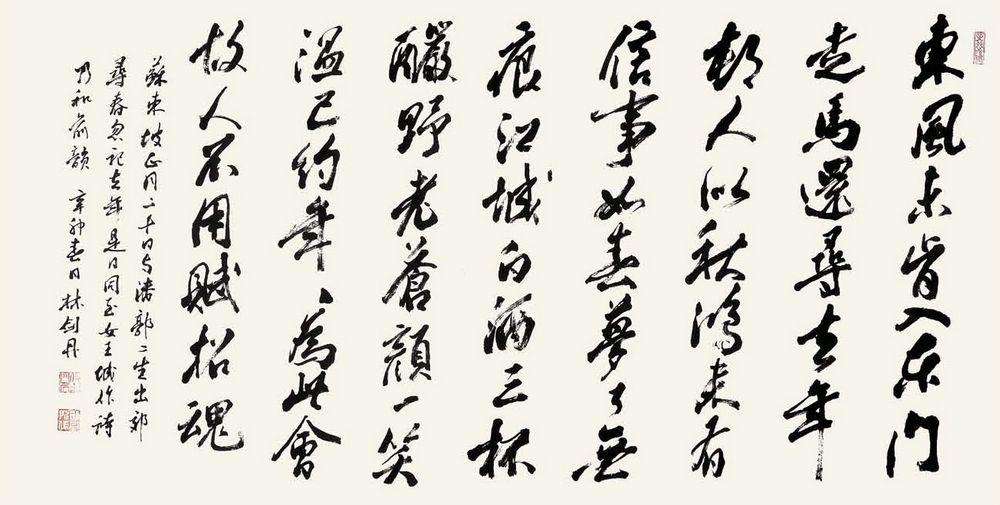 東風未肯入東門
走馬還尋去年
邨人似秋鴻來有
信事如春夢了無
痕江城白酒三杯
釅野老蒼顏一笑
溫已約年〻為此會
故人不用賦招魂
蘇東坡正月二十日与潘郭二生出郊
尋春忽記去年是日同至女王城作詩
乃和前韻 辛卯春日林劍丹